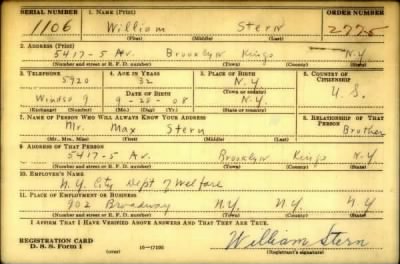 SERIAL NUMBER 1. NAME (Print) ORDER NUMBER
1106 William Stern 2775
(First) (Middle) (Last)
2. ADDRESS (Print)
5417-5 Av. Brooklyn Kings N.Y
(Number and street or R. F. D. number) (Town) (County) (State)
3. TELEPHONE 4. AGE IN YEARS 5. PLACE OF BIRTH 6. COUNTRY OF CITIZENSHIP
5920 32 N.Y.
(Town or county)
Windsor 9 DATE OF BIRTH U.S.
9-20-08 N.Y.
(Exchange) (Number) (Mo.) (Day) (Yr.) (State or country)
7. NAME OF PERSON WHO WILL ALWAYS KNOW YOUR ADDRESS 8. RELATIONSHIP OF THAT PERSON
Mr. Max Stern Brother
(Mr., Mrs., Miss) (First) (Middle) (Last)
9. ADDRESS OF THAT PERSON
5417-5 Av. Brooklyn Kings N.Y
(Number and street or R. F. D. number) (Town) (County) (State)
10. EMPLOYER'S NAME
N.Y. City Dept of Welfare
11. PLACE OF EMPLOYMENT OR BUSINESS
902 Broadway N.Y. N.Y. N.Y
(Number and street or R. F. D. number) (Town) (County) (State)
I AFFIRM THAT I HAVE VERIFIED ABOVE ANSWERS AND THAT THEY ARE TRUE.
REGISTRATION CARD
D. S. S. Form 1 16-17105 William Stern
(over) (Registrant's signature)